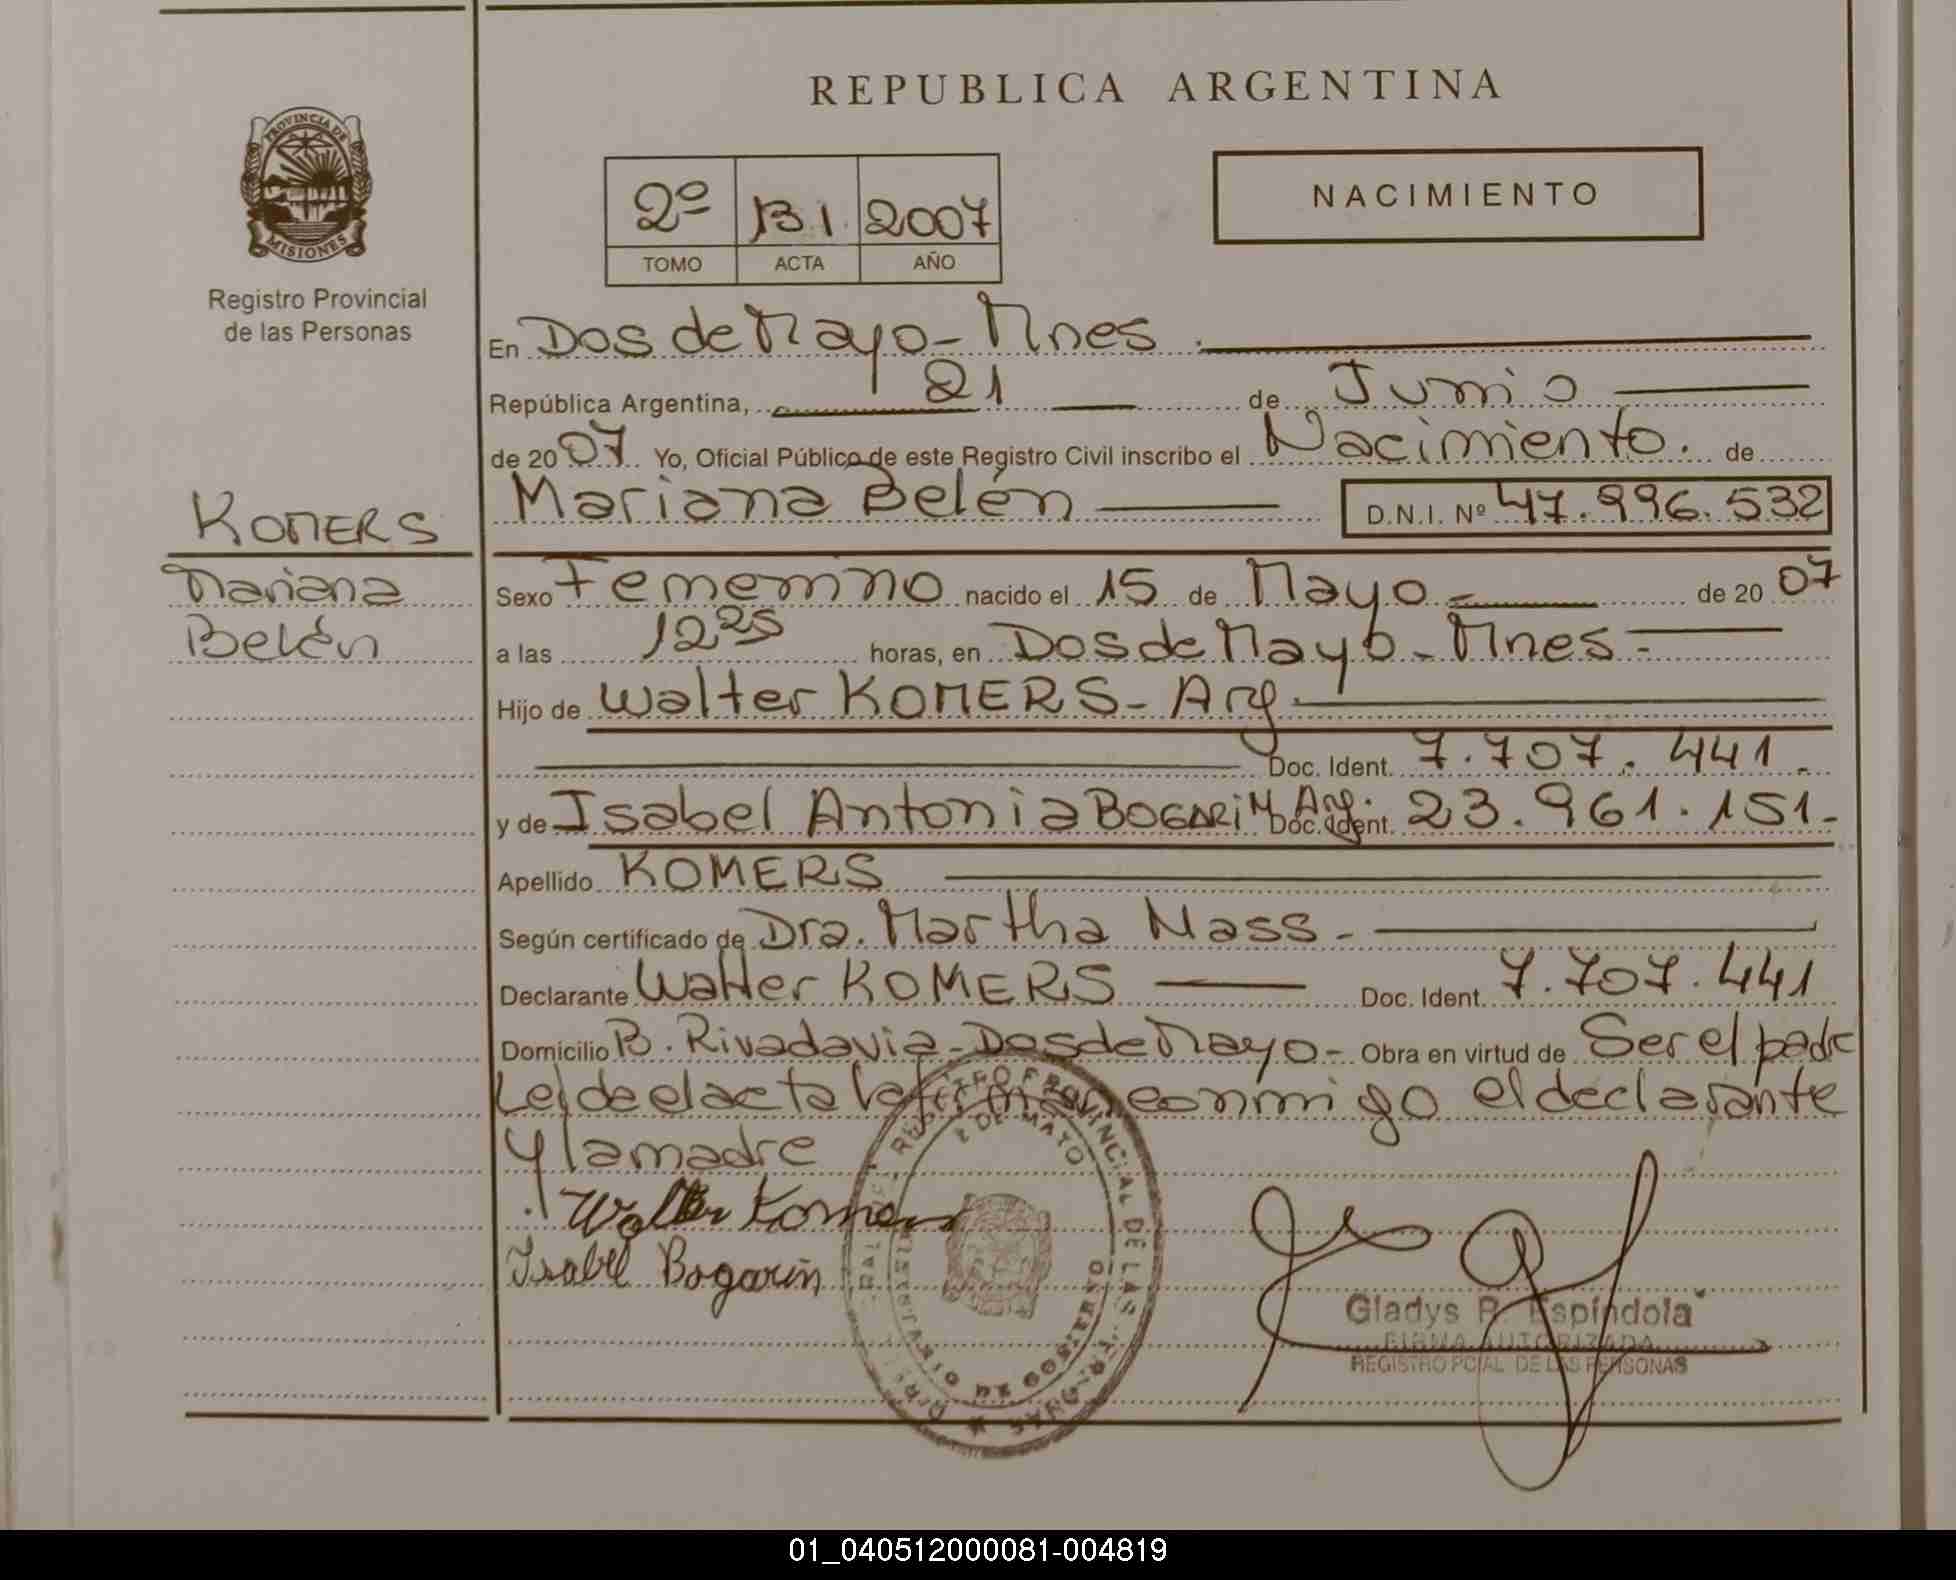 REPUBLICA ARGENTINA
PROVINCIA DE
MISIONES
Registro Provincial
de las Personas
2º 131 2007
TOMO ACTA AÑO
NACIMIENTO
En Dos de Mayo - Mnes
República Argentina, 21 de Junio
de 2007 Yo, Oficial Público de este Registro Civil inscribo el Nacimiento. de
Mariana Belén D.N.I. Nº 47.996.532
KOMERS
Mariana
Belén
Sexo Femenino nacido el 15 de Mayo - de 2007
a las 12 25 horas, en Dos de Mayo - Mnes -
Hijo de Walter KOMERS - Arg.
Doc. Ident. 7.707.441.
y de Isabel Antonia BOGARIN Arg. Doc. Ident. 23.961.151.-
Apellido KOMERS
Según certificado de Dra. Martha Nass -
Declarante Walter KOMERS Doc. Ident. 7.707.441
Domicilio B. Rivadavia - Dos de Mayo - Obra en virtud de Ser el padre
Leída el acta la firman conmigo el declarante
y la madre
Walter Komers
Isabel Bogarin
REGISTRO PROVINCIAL DE LAS PERSONAS
2 DE MAYO
Gladys R. Espíndola
FIRMA AUTORIZADA
REGISTRO PCIAL DE LAS PERSONAS
01_040512000081-004819